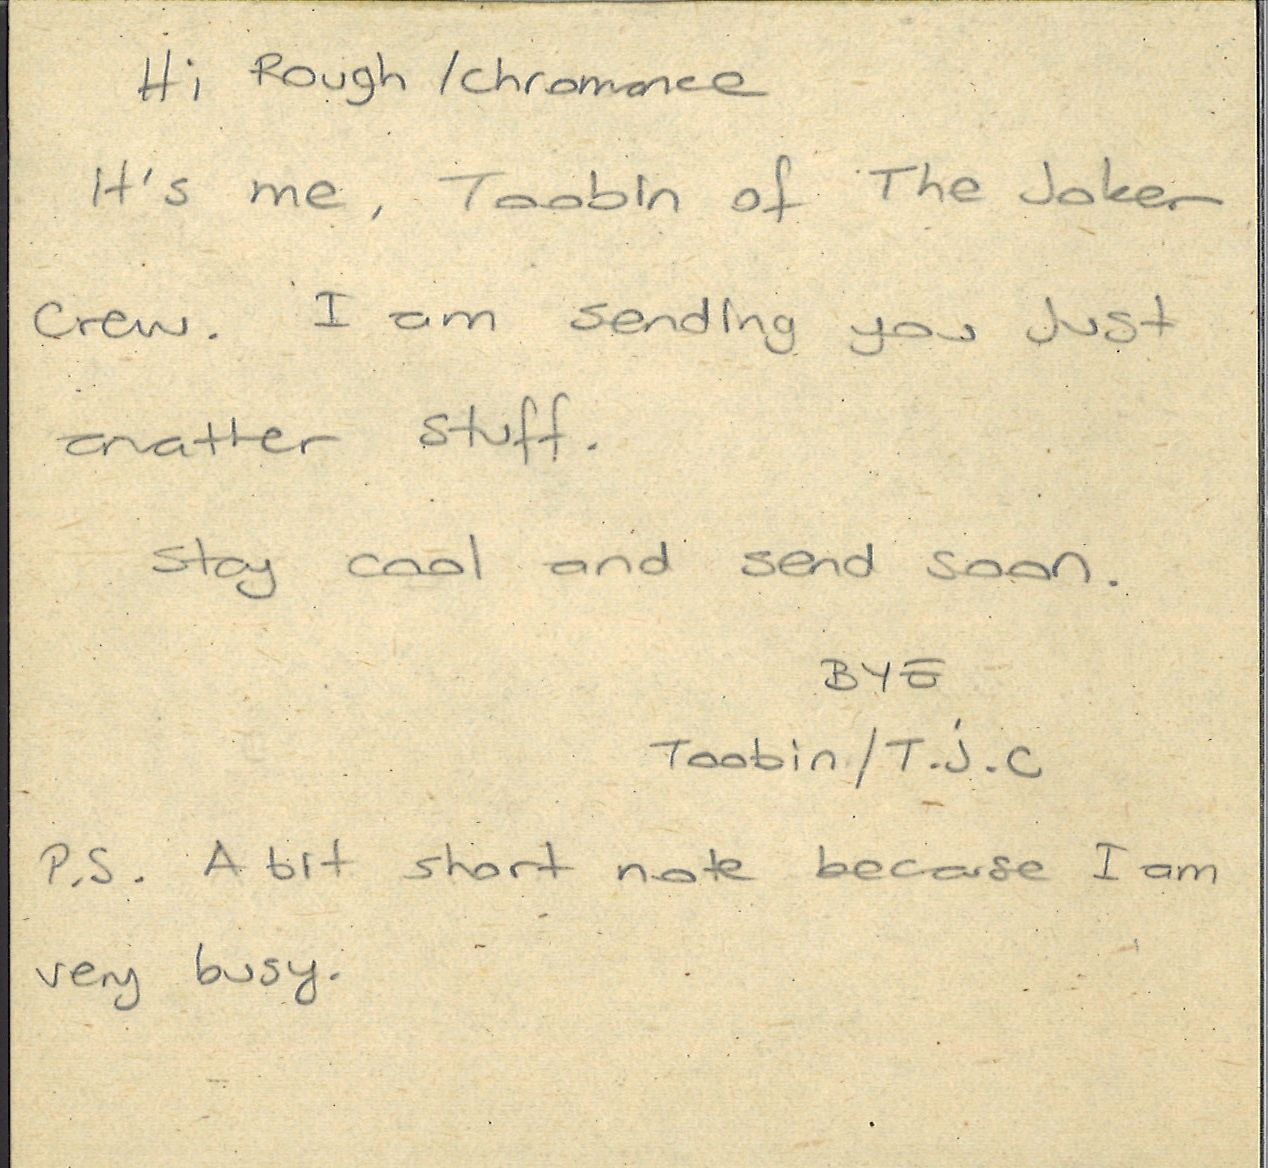 Hi Rough /chromance
It's me, Toobin of The Joker
Crew. I am sending you Just
anatter stuff.
stay cool and send soon.
BYE
Toobin/T.J.C
P.S. A bit short note because I am
very busy.